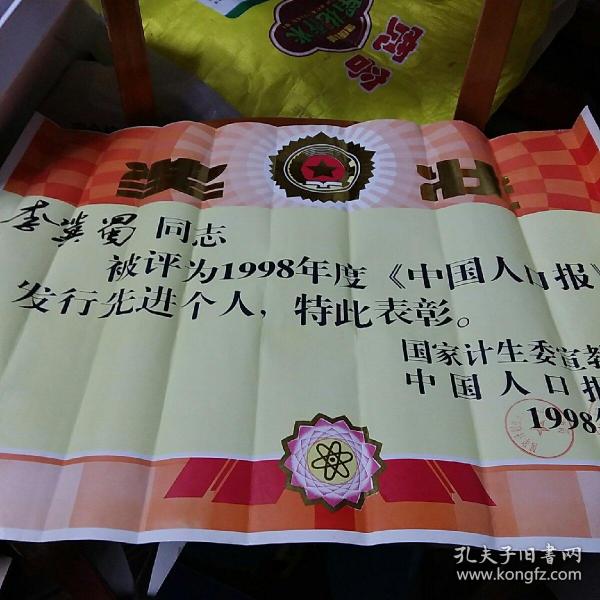 奖
李冀蜀 同志
被评为1998年度《中国人口报》
发行先进个人，特此表彰。
国家计生委宣教
中国人口报
1998年
孔夫子旧书网
www.kongfz.com